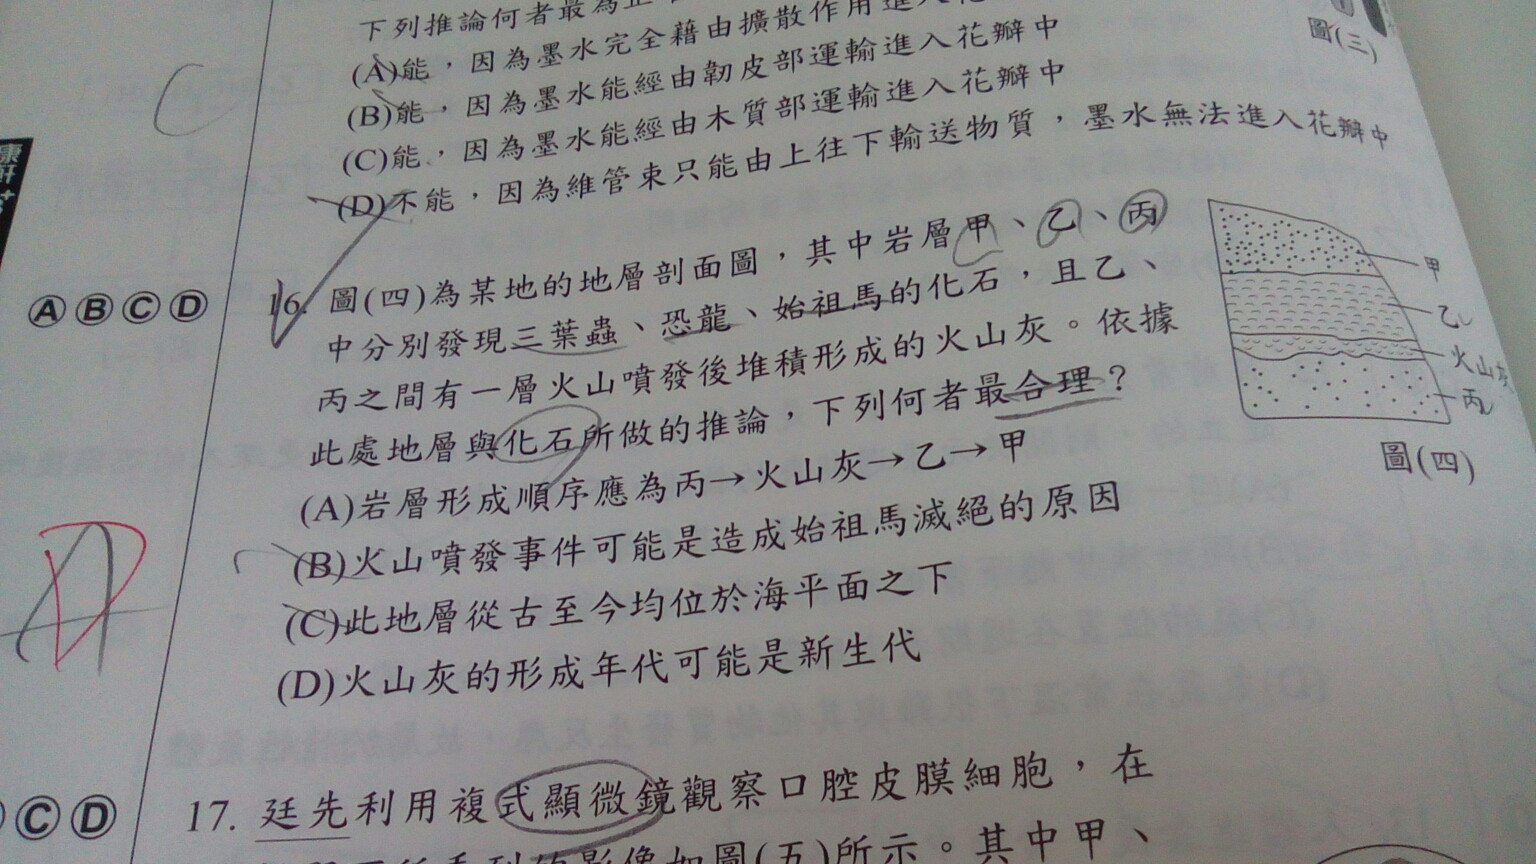 下列推論何者最為正
(A)能，因為墨水完全藉由擴散作用進入花
(B)能，因為墨水能經由韌皮部運輸進入花瓣中
(C)能，因為墨水能經由木質部運輸進入花瓣中
(D)不能，因為維管束只能由上往下輸送物質，墨水無法進入花瓣中
圖(三)
康軒
ABCD
16. 圖(四)為某地的地層剖面圖，其中岩層甲、乙、丙
中分別發現三葉蟲、恐龍、始祖馬的化石，且乙、
丙之間有一層火山噴發後堆積形成的火山灰。依據
此處地層與化石所做的推論，下列何者最合理？
(A)岩層形成順序應為丙→火山灰→乙→甲
(B)火山噴發事件可能是造成始祖馬滅絕的原因
(C)此地層從古至今均位於海平面之下
(D)火山灰的形成年代可能是新生代
甲
乙
火山灰
丙
圖(四)
CD
17. 廷先利用複式顯微鏡觀察口腔皮膜細胞，在
影像如圖(五)所示。其中甲、